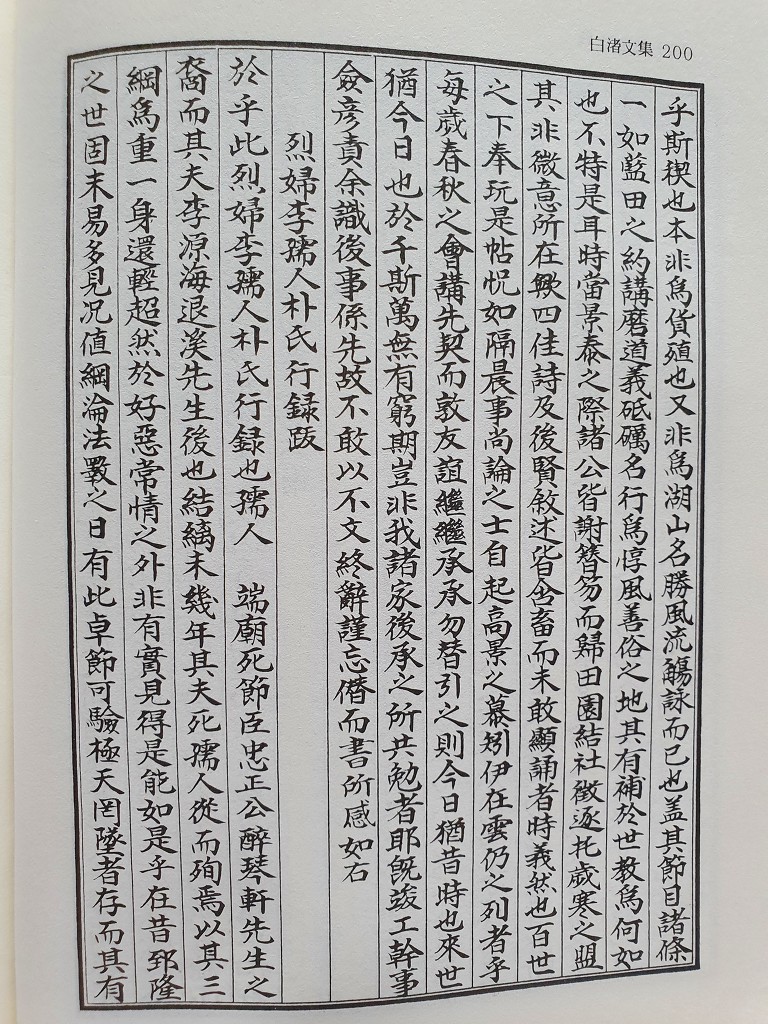 白渚文集 200
乎斯稧也本非爲貨殖也又非爲湖山名勝風流觴詠而已也盖其節目諸條
一如藍田之約講磨道義砥礪名行爲惇風善俗之地其有補於世敎爲何如
也不特是耳時當景泰之際諸公皆謝簪笏而歸田園結社徵逐托歲寒之盟
其非微意所在歟四佳詩及後賢敘述皆含畜而未敢顯誦者時義然也百世
之下奉玩是帖怳如隔晨事尚論之士自起高景之慕矧伊在雲仍之列者乎
每歲春秋之會講先契而敦友誼繼繼承承勿替引之則今日猶昔時也來世
猶今日也於千斯萬無有窮期豈非我諸家後承之所共勉者耶旣竣工幹事
僉彦責余識後事係先故不敢以不文終辭謹忘僭而書所感如右
烈婦李孺人朴氏行録跋
於乎此烈婦李孺人朴氏行録也孺人 端廟死節臣忠正公醉琴軒先生之
裔而其夫李源海退溪先生後也結縭未幾年其夫死孺人從而殉焉以其三
綱爲重一身還輕超然於好惡常情之外非有實見得是能如是乎在昔郅隆
之世固未易多見况値綱淪法斁之日有此卓節可驗極天罔墜者存而其有